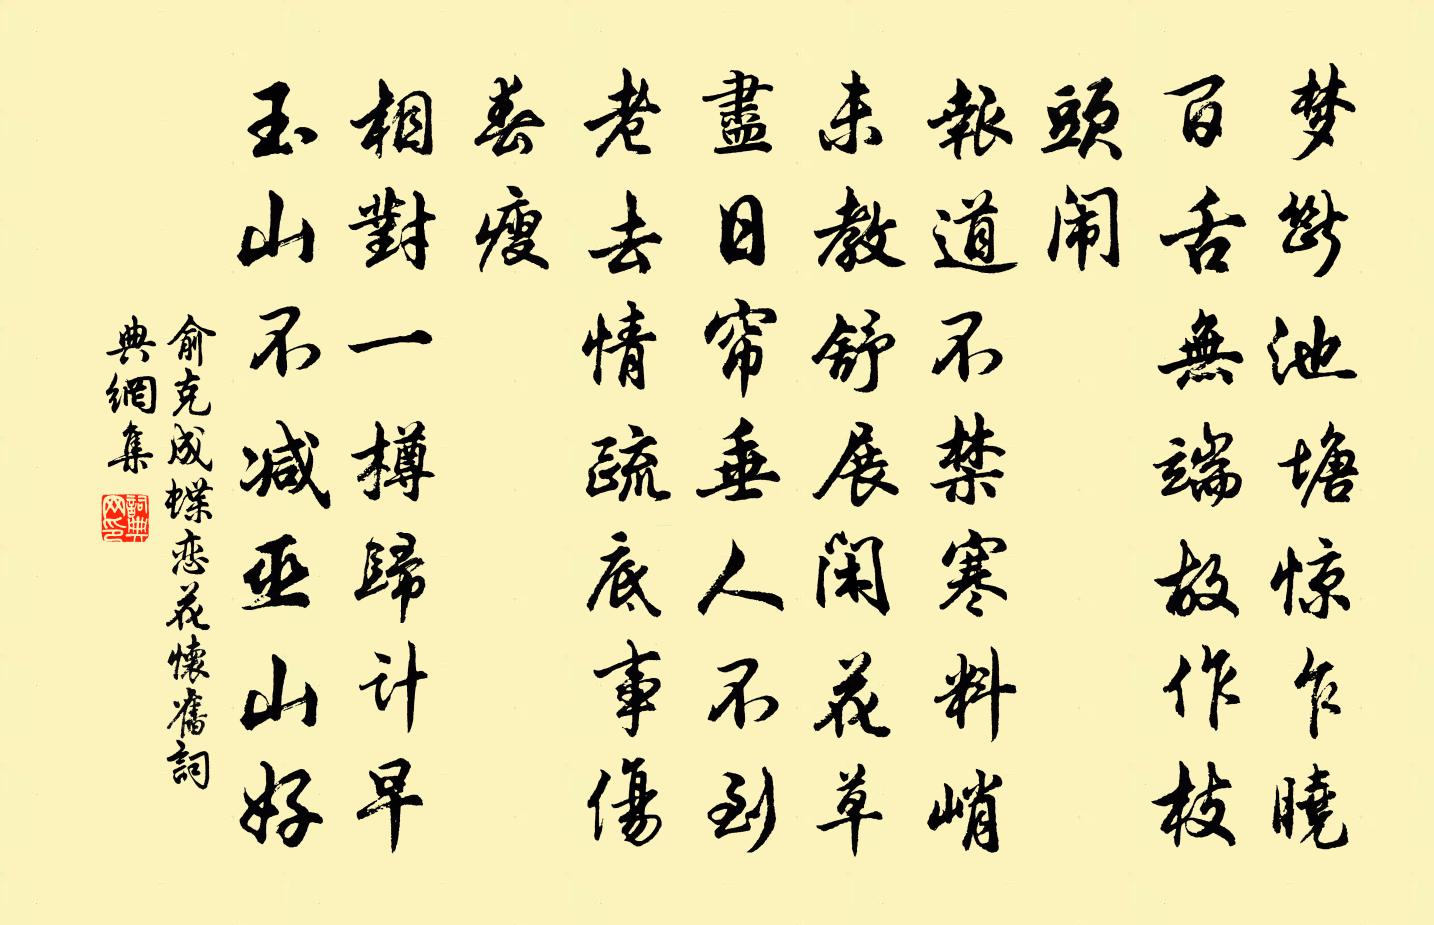 梦斷池塘惊乍曉
百舌無端故作枝
頭闹
報道不禁寒料峭
未教舒展闲花草
盡日帘垂人不到
老去情疏底事傷
春瘦
相對一樽歸计早
玉山不减巫山好
俞克成蝶恋花懷舊詞
典網集
詞典网印